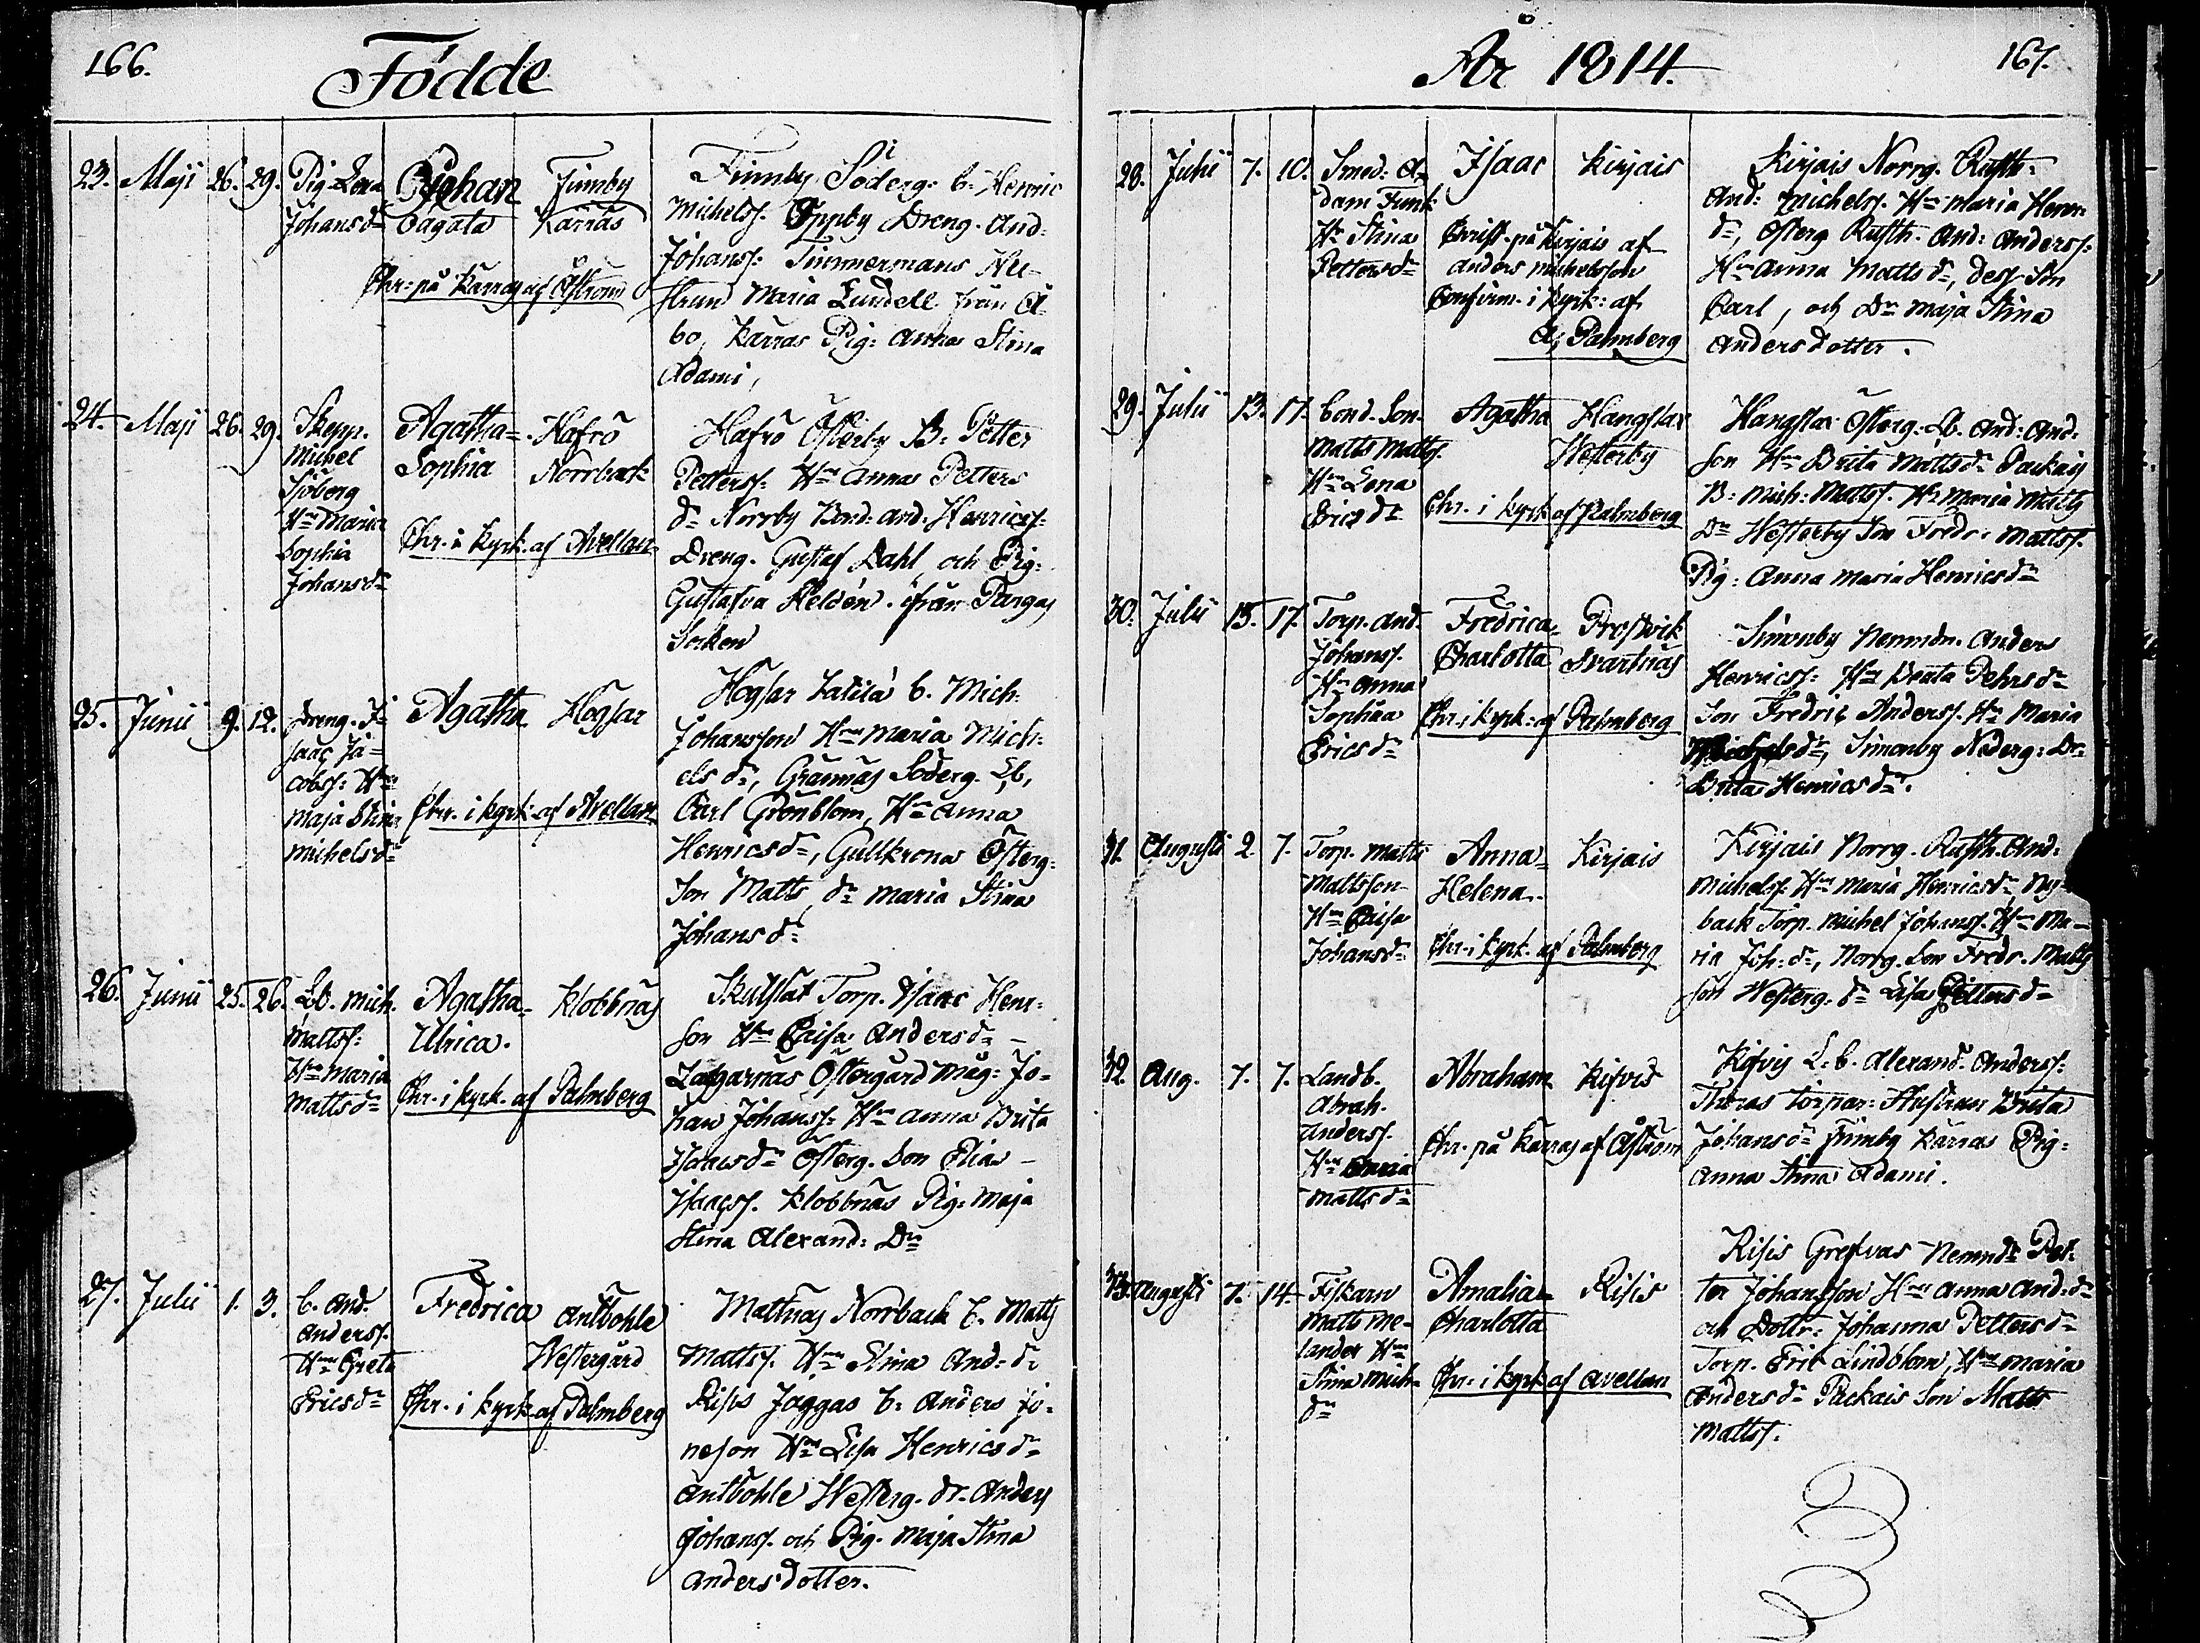 166.
Födde
23. Maji 26. 29. Pig. Lena
Johans dr
Johan
Oägata
Finnby
Karras
Chr. på Karras af Åström
Finnby Söderg. b. Henric
Michelss. Öppby Dreng. And.
Johanss. Timmermans
Hustrun Maria Lundell från Å-
bo, Karras Pig: Anna Stina
Adami,
24. Maji 26. 29. Skepp.
Michel
Sjöberg
Hu Maria
Sophia
Johans dr
Agatha=
Sophia
Hafrö
Norrback
Chr. i kyrk. af Avellan
Hafrö Österby B. Petter
Petterss. Hu Anna Petters
dr Norrby Bond. And. Henricss.
Dreng. Gustaf Dahl och Pig:
Gustafva Helden. ifrån Pargas
Socken
25. Junii 9. 12. Dreng. I-
saac Ja=
cobss: Hu
Maja Stina
Michels dr
Agatha
Högsar
Chr. i kyrk. af Avellan
Högsar b. Mich.
Johansson Hu Maria Mich-
els dr, Grännäs Söderg. Lb,
Carl Grönblom, Hu Anna
Henrics dr, Gullkrona Österg.
Son Matts, dr Maria Stina
Johans dr
26. Junii 25. 26. Lb. Mich.
Mattss:
Hu Maria
Matts dr
Agatha=
Ulrica.
Klobbnäs
Chr. i kyrk. af Palmberg
Torp. Isaac Henr-
son Hu Caisa Anders dr
Östergård Måg: Jo-
han Johanss: Hu Anna Brita
Isaacs dr Österg. Son Elias
Isaacss. Klobbnäs Pig: Maja
Stina Alexand: Dr
27. Julii 1. 3. b. And.
Anderss.
Hu Greta
Erics dr
Fredrica
Antböhle
Westergård
Chr. i kyrk af Palmberg
Mattnäs Norrback b. Matts
Mattss. Hu Stina And: dr
Risis Jaggas b. Anders Jo-
Hu Lisa Henrics dr
Antböhle Westerg. dr. Anders
Johanss. och Pig. Maja Stina
Andersdotter.
År 1814.
167.
28. Julii 7. 10. Smed. A-
dam Funk
Hu Stina
Petters dr
Isaac
Kirjais
Christ. på Kirjais af
Anders Michelsson
Confirm. i kyrk: af
A. Palmberg
Kirjais Norrg. Rusth.
And: Michelss. Hu Maria Henr:
dr, Österg Rusth. And: Anderss:
Hu Anna Matts dr, dess Son
Carl, och Dr Maja Stina
Andersdotter.
29. Julii 13. 17. bond. Son.
Matts Matts.
Hu Lena
Erics dr
Agatha
Hangslax
Westerby
Chr. i kyrk af Palmberg
Hangslax Österg. Lb. And: And.
son Hu Brita Matts dr Packais
B: Mich: Mattss. Hu Maria Matts
Dr Westerby Son Fredr: Mattss.
Pig: Anna Maria Henrics dr
30. Julii 15. 17. Torp. And.
Johanss.
Hu Anna
Sophia
Erics dr
Fredrica
Charlotta
Prostvik
Svartnäs
Chr. i kyrk. af Palmberg
Simonby Nemndm. Anders
Henricss: Hu Beata Pehrs dr
Son Fredric Anderss. Hu Maria
Michels dr, Simonby Nederg: Dr
Brita Henrics dr.
31. Augusti 2. 7. Torp. Matts
Mattsson
Hu Caisa
Johans dr
Anna=
Helena.
Kirjais
Chr. i kyrk. af Palmberg
Kirjais Norrg. Rusth. And:
Michelss. Hu Maria Henrics dr Ny-
back Torp. Michel Johanss. Hu Ma-
ria Joh: dr, Norrg. Son Fredr. Matts
son Westerg. dr Lisa Petters dr
32. Aug. 7. 7. Landb.
Abrah.
Anderss.
Hu Maria
Matts dr
Abraham
Chr. på Karras af Åström
L. b. Alexand. Anderss:
Hustrun Brita
Johans dr Finnby Karras Pig:
Anna Stina Adami.
33. Augusti 7. 14. Fiskarn
Matts Me-
lander Hu
Stina Mich-
dr
Amalia=
Charlotta
Risis
Chr. i kyrk af Avellan
Risis Grefvas Nemnd: Pet-
ter Johansson Hu Anna And: dr
och Dottr: Johanna Petters dr
Torp. Eric Lindblom, Hu Maria
Anders dr Packais Son Matts
Mattss.